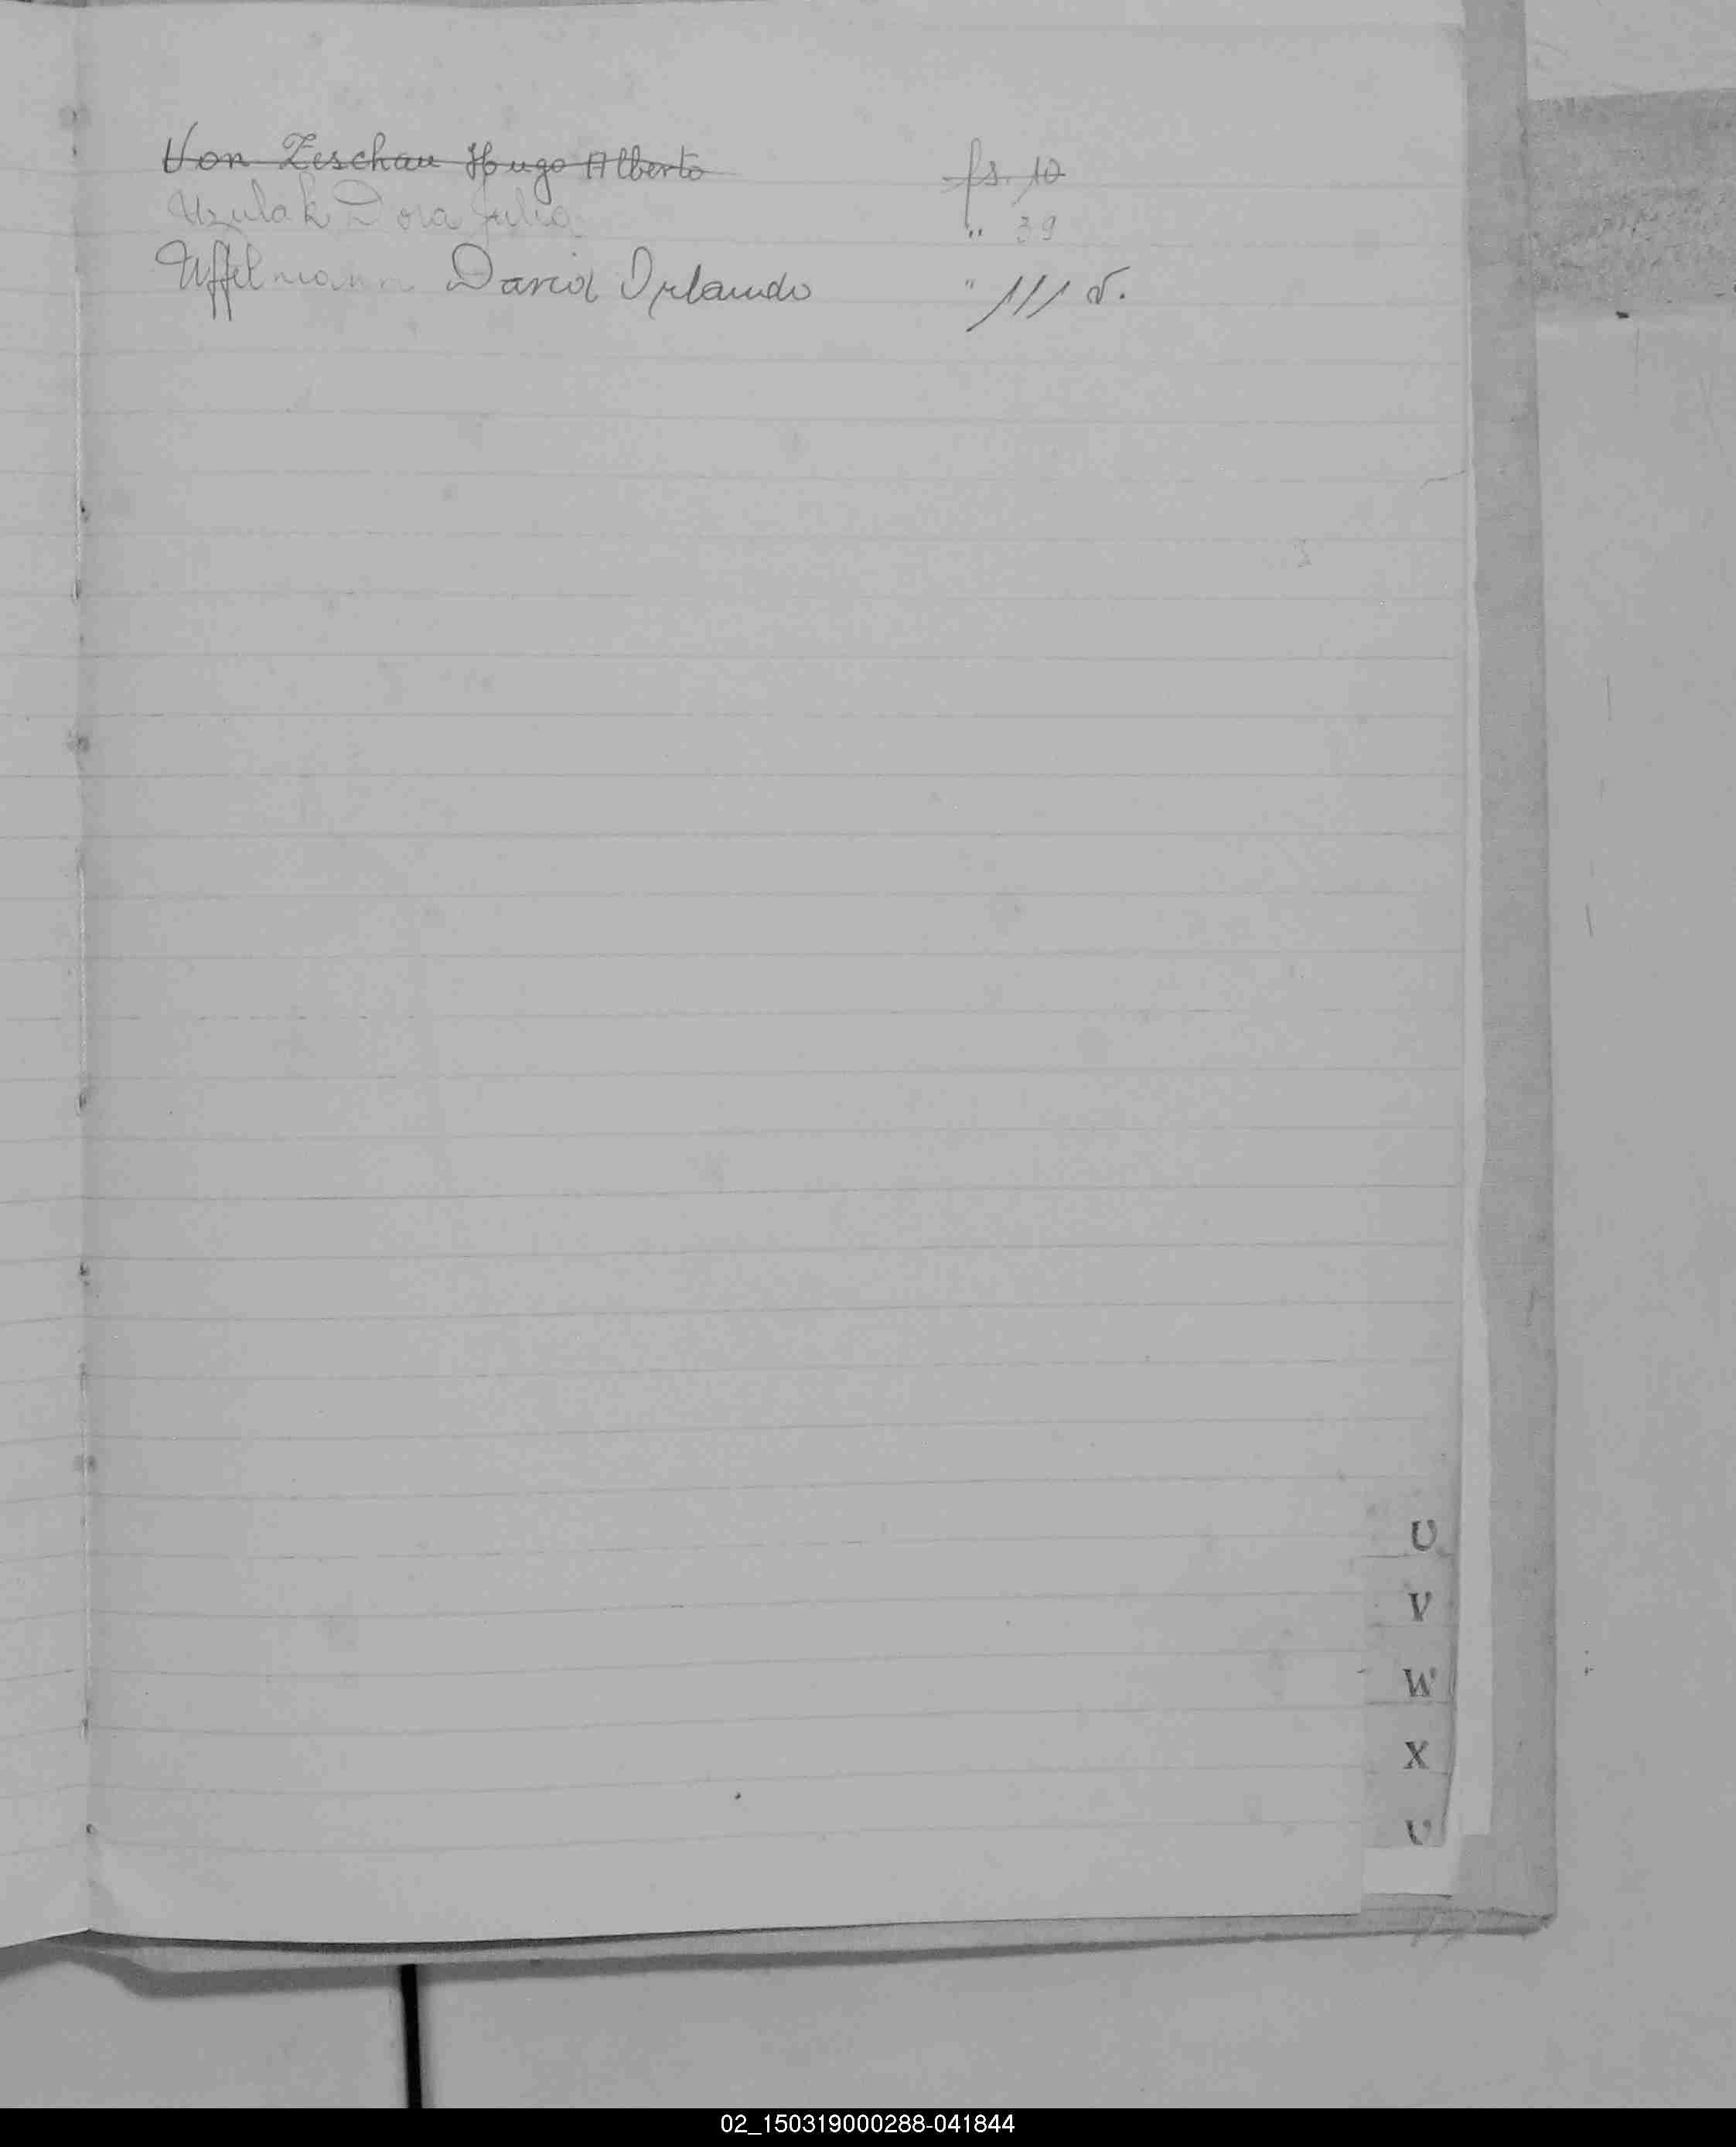 Von Zeschau Hugo Alberto fs. 10
Uzulak Dora Julia " 39
Uffelmann David Orlando " 111 v.
U
V
W
X
02_150319000288-041844